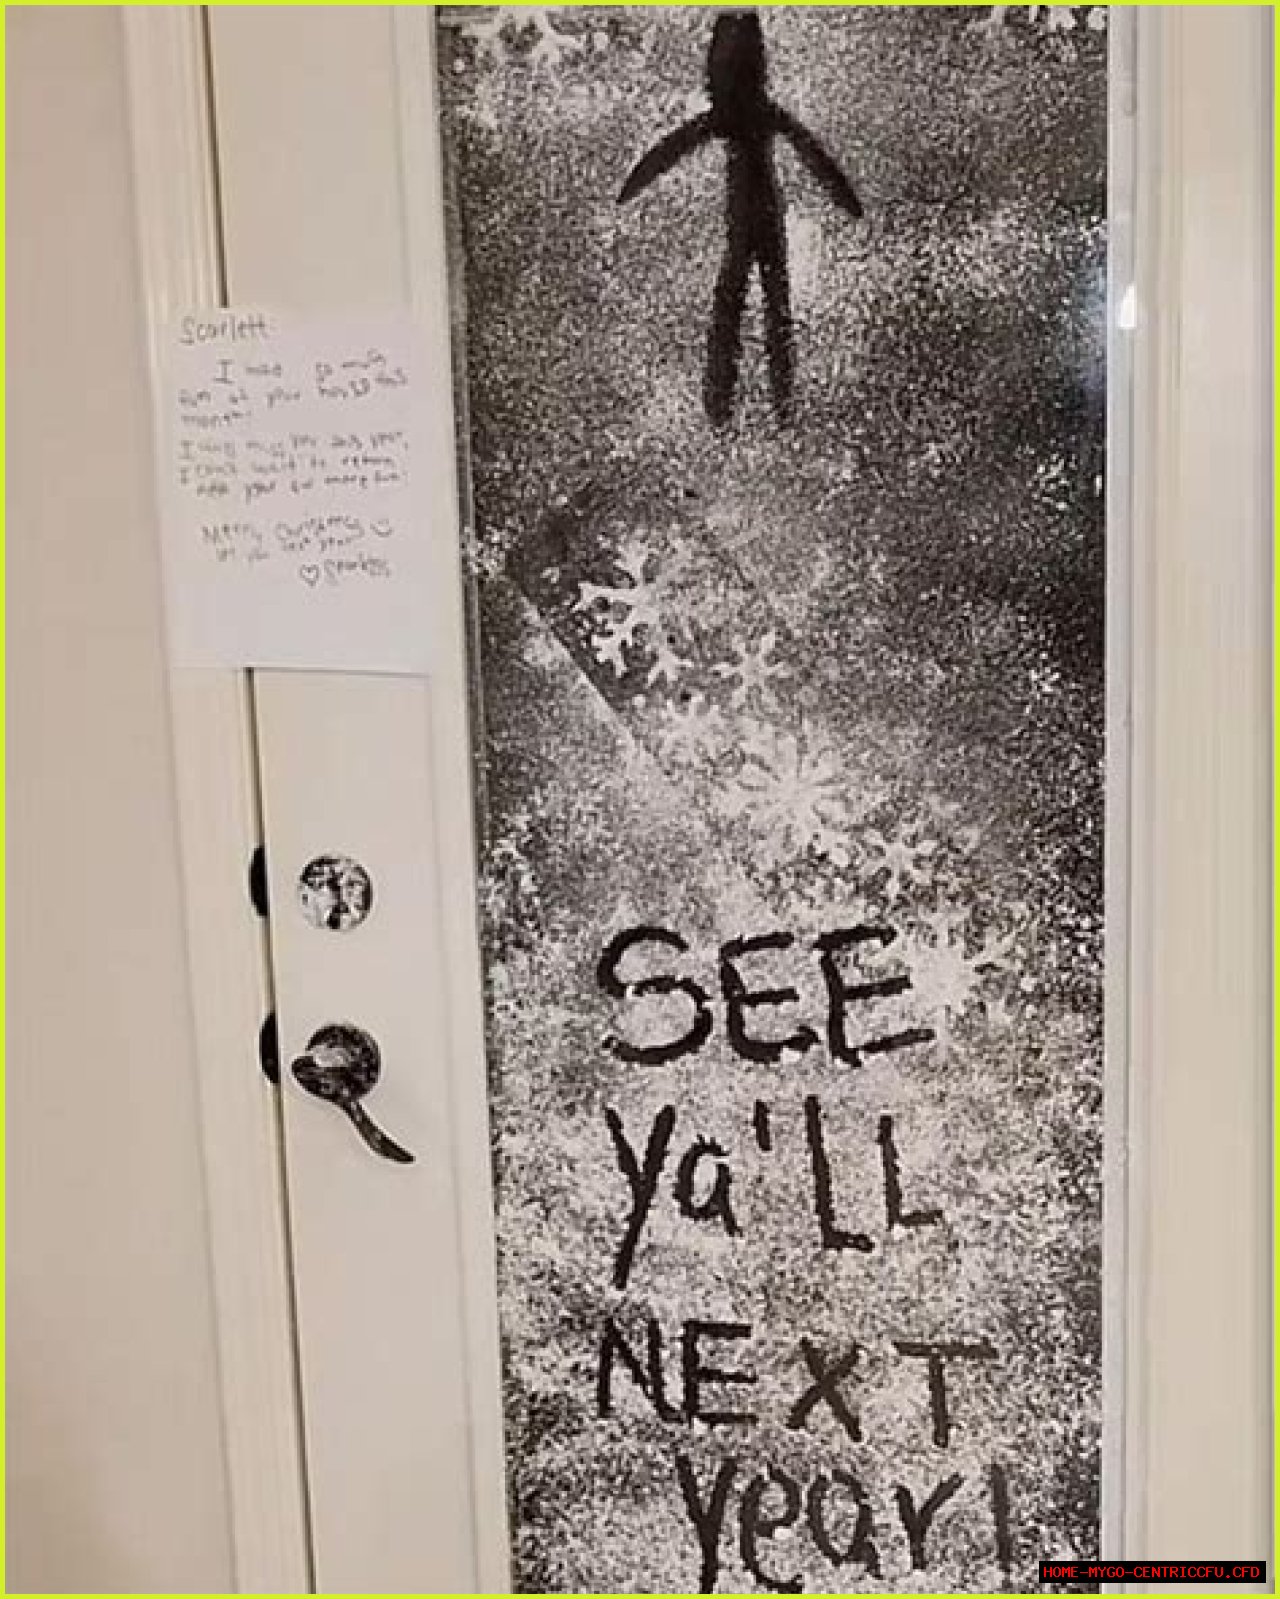 Scarlett
I had so much
fun at your house this
month!
I will miss you this year,
I can't wait to return
next year for more fun!
Merry Christmas
see you next year
♡ Sparkles
SEE
ya'LL
NEXT
year!
HOME-MYGO-CENTRICCFU.CFD